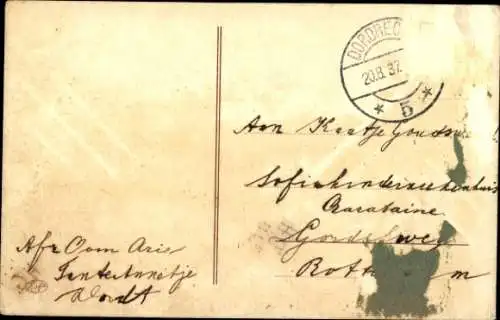 DORDREC
20.8.37
5
Aan Kaatje Gouds
Sofiakinderziekenhuis
Quarataine
Gordelweg
Rott m
Afz Oom Arie
Tante Annetje
Dordt